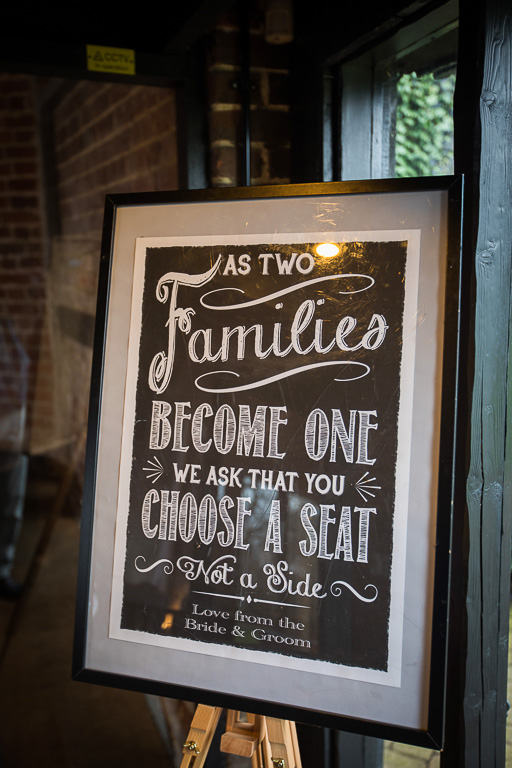 CCTV
AS TWO
Families
BECOME ONE
WE ASK THAT YOU
CHOOSE A SEAT
Not a Side
Love from the
Bride & Groom